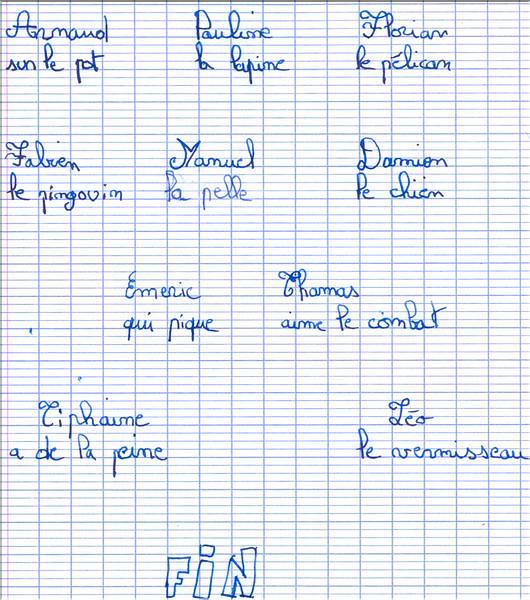 Armand Pauline Florian
sur le pot la lapine le pélican
Fabien Manuel Damien
le pingouin la pelle le chien
Emeric Thomas
qui pique aime le combat
Tiphaine Léo
a de la peine le vermisseau
FIN